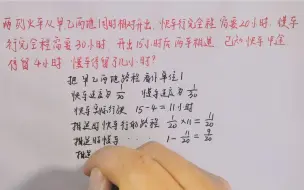 两列火车从甲乙两地同时相对开出,快车行完全程需要20小时,慢车
行完全程需要30小时,开出15小时后两车相遇,已知快车中途
停留4小时,慢车停留了几小时?
把甲乙两地路程看作单位1
快车速度为1/20 慢车速度为1/30
快车实际行驶 15-4=11小时
相遇时快车行的路程 1/20×11=11/20
相遇时慢车 1-11/20=9/20
相遇